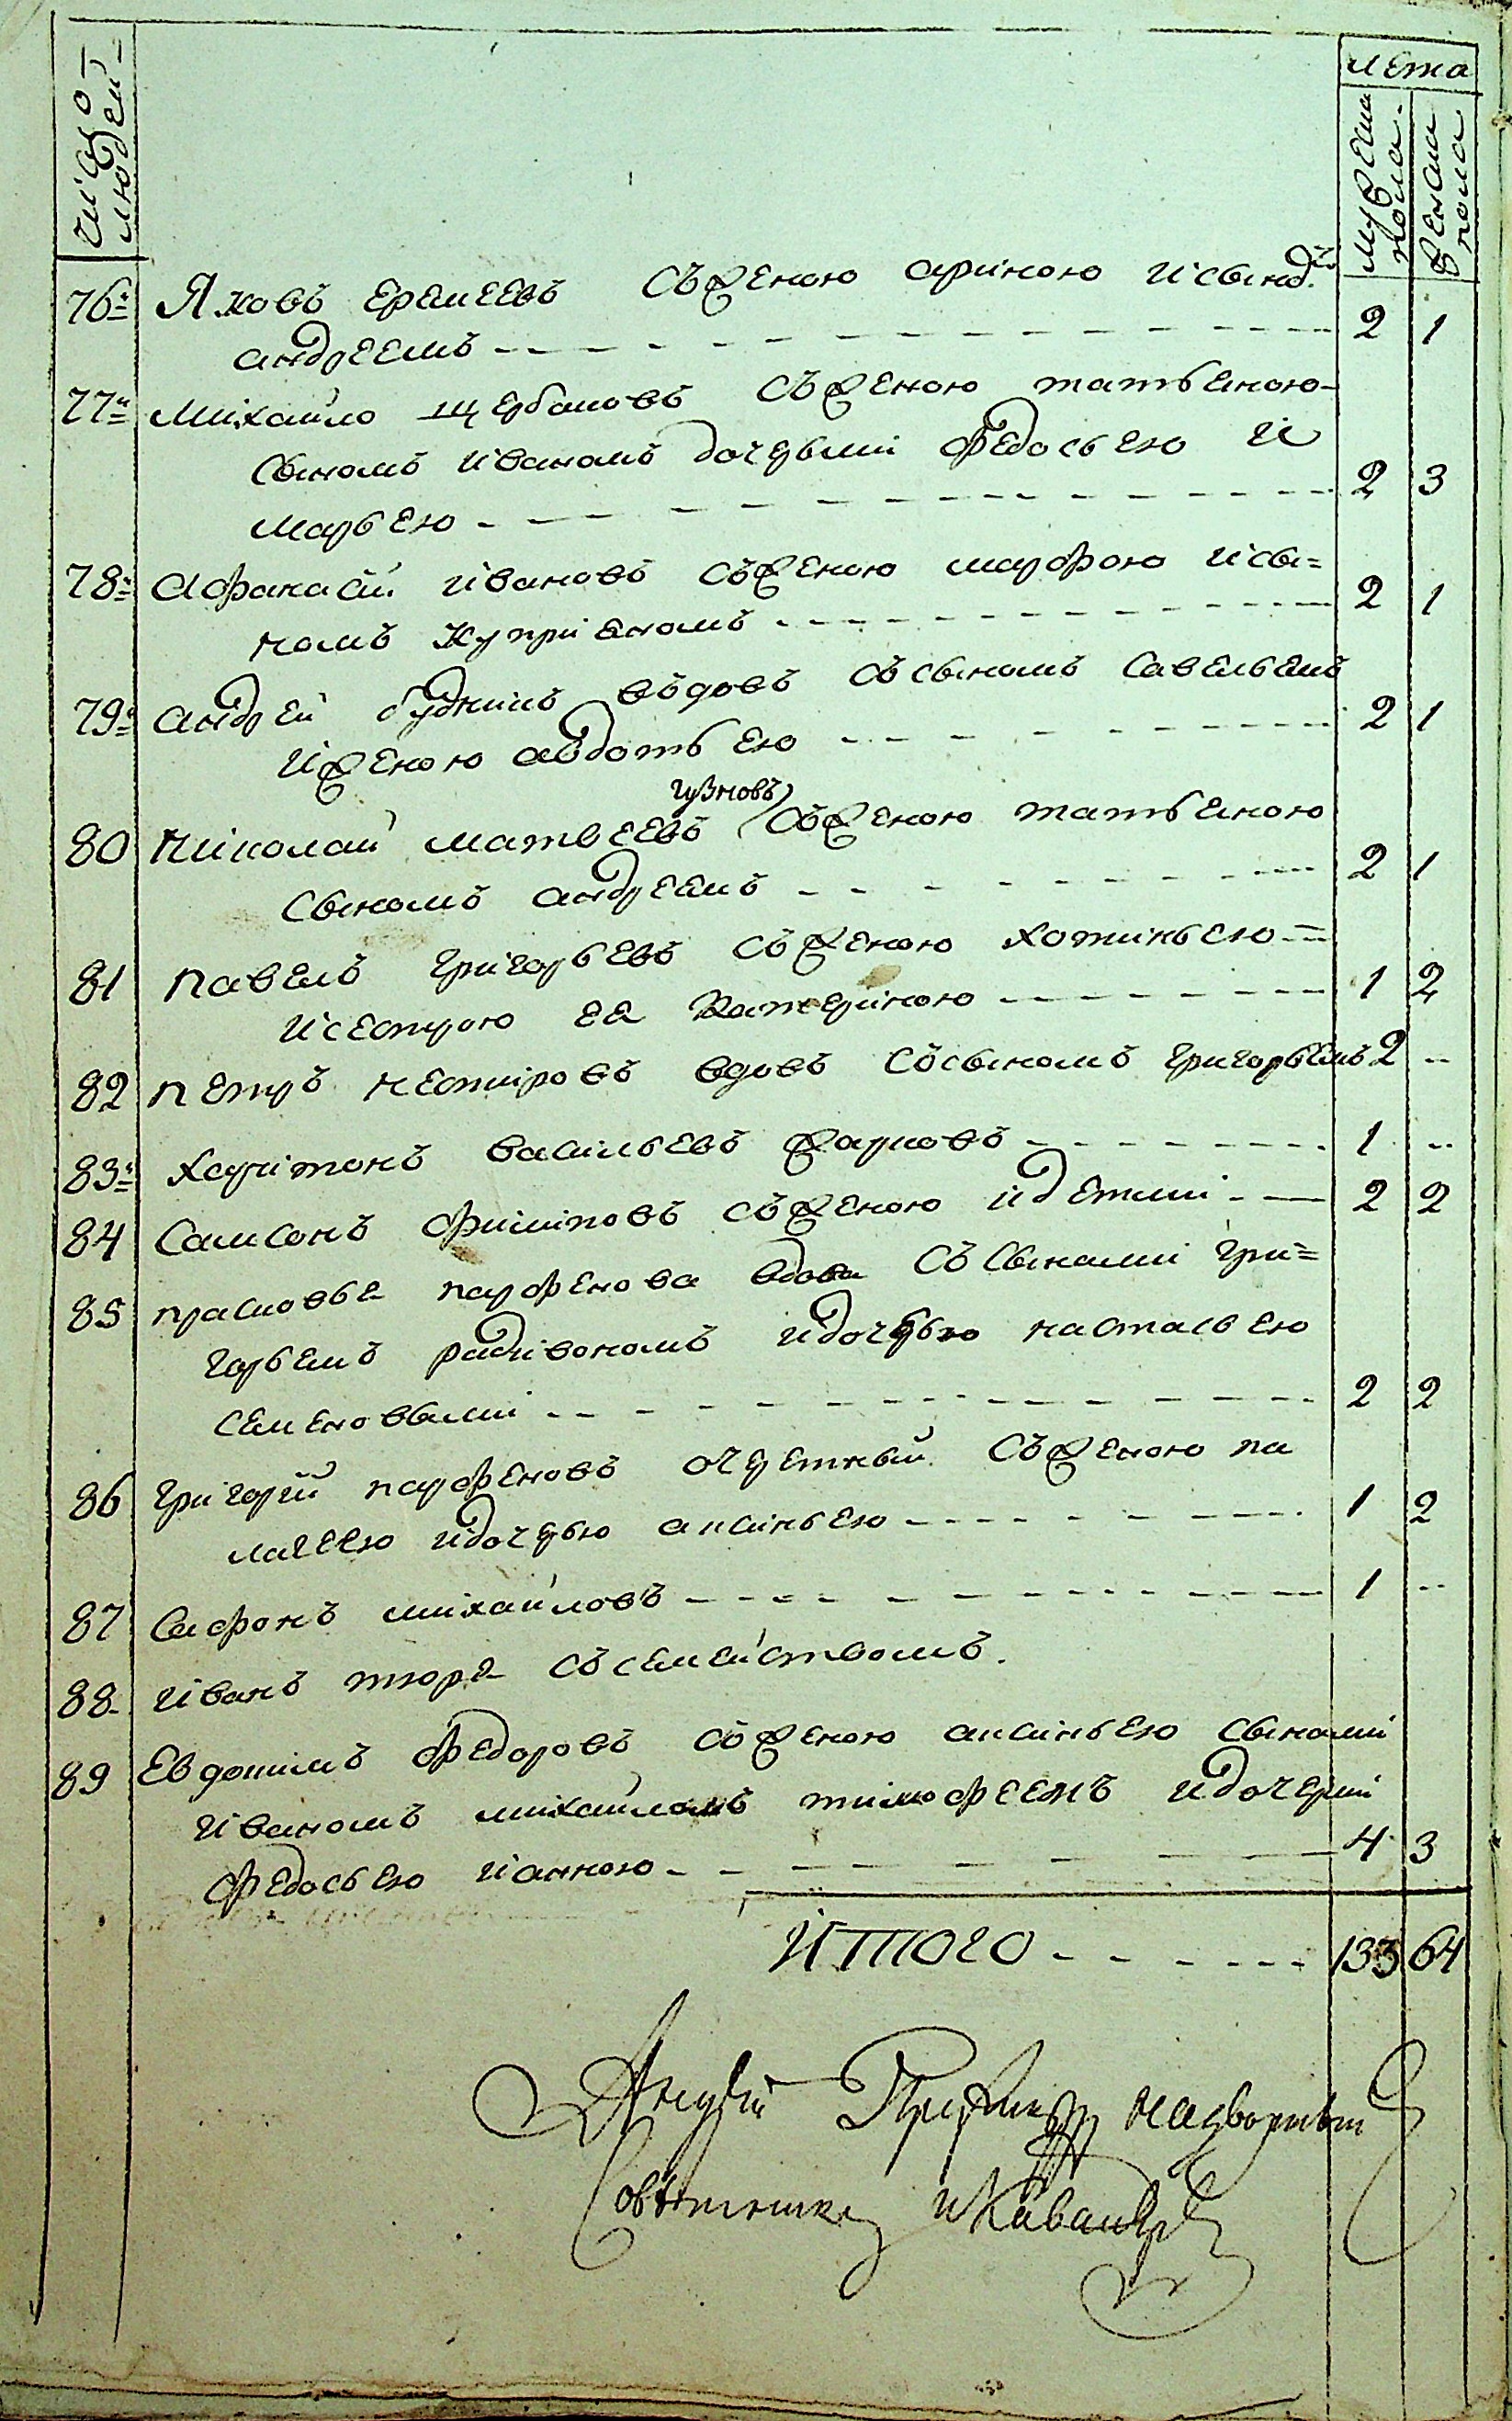 число людей
лета
мужеска пола
женска пола
76 Яковъ Еремеевъ съженою ариною исыномъ
андреемъ 2 1
77 Михайло щербаковъ съженою татьяною
сыномъ иваномъ дочерьми федосьею и
марьею 2 3
78 Афанасий ивановъ съженою марфою исы=
номъ Куприяномъ 2 1
79 андрей будкинъ въдовъ съсыномъ савельемъ
иженою авдотьею 2 1
гузновъ
80 николай матвеевъ съженою татьяною
сыномъ андреемъ 2 1
81 павелъ григорьевъ съженою хотиньею
исестрою ея Катериною 1 2
82 петръ нестировъ вдовъ съсыномъ григорьемъ 2 --
83 харитонъ васильевъ жарковъ 1 --
84 Самсонъ филиповъ съженою идетми 2 2
85 прасковья парфенова вдова съсынами гри=
горьемъ радивономъ идочерью настасьею
семеновыми 2 2
86 григорий парфеновъ очретный съженою па
лагеею идочерью аксиньею 1 2
87 Сафонъ михайловъ 1 --
88 иванъ тюря съсемействомъ.
89 Евдокимъ федоровъ съженою аксиньею сынами
иваномъ михайломъ тимофеемъ идочерми
федосьею ианною 4 3
ИТОГО 133 64
Андрей надворный
Советникъ иКавалеръ